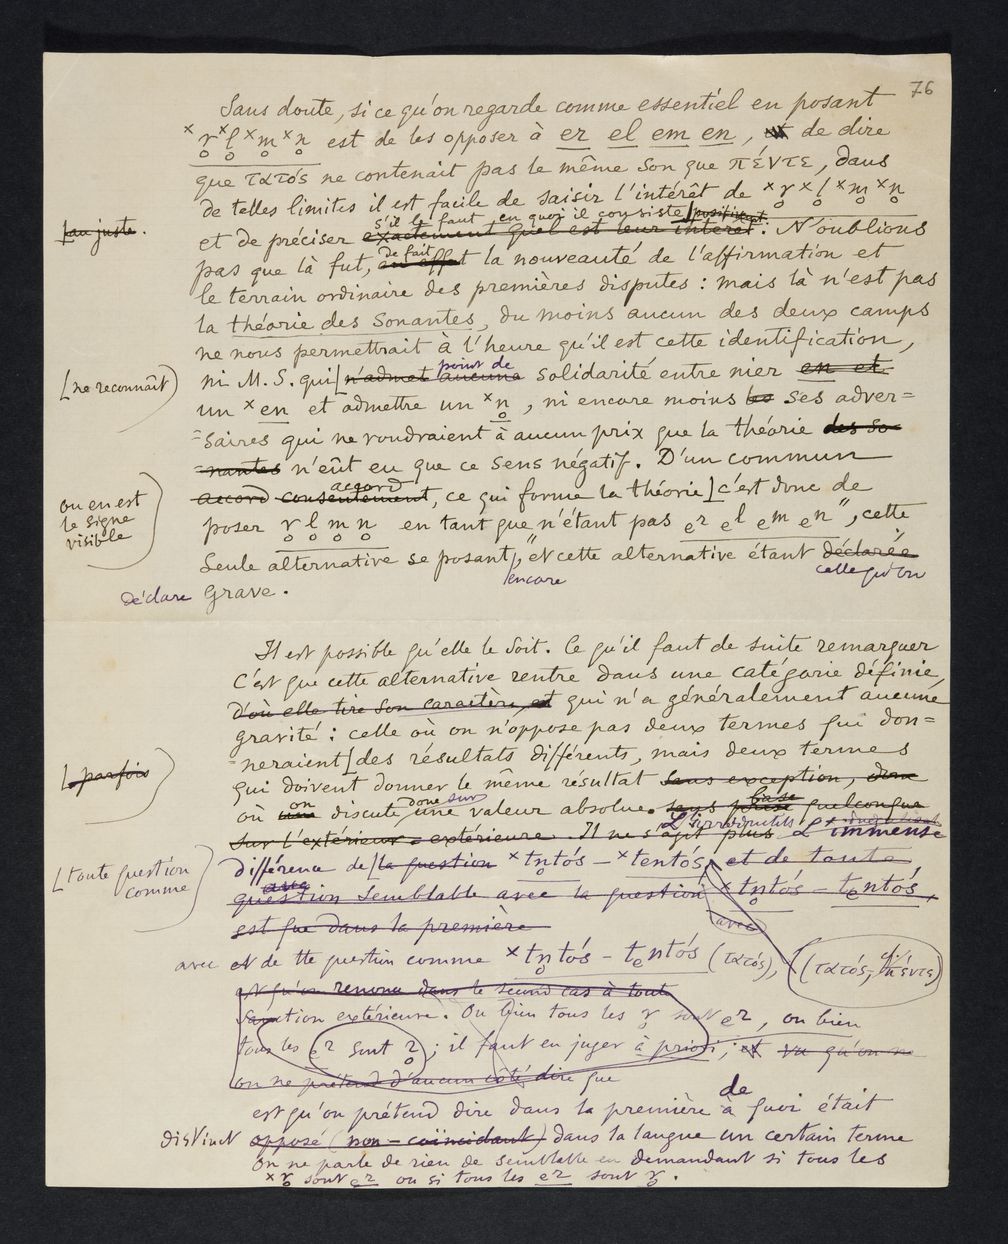 76
Sans doute, si ce qu'on regarde comme essentiel en posant
×r̥ ×l̥ ×m̥ ×n̥ est de les opposer à er el em en, et de dire
que τατός ne contenait pas le même son que πέντε, dans
de telles limites il est facile de saisir l'intérêt de ×r̥ ×l̥ ×m̥ ×n̥
s'il le faut, en quoi il consiste positivt.
[au juste.
et de préciser exactement quel est leur intérêt. N'oublions
de fait
pas que là fut, en effet la nouveauté de l'affirmation et
le terrain ordinaire des premières disputes : mais là n'est pas
la théorie des Sonantes, du moins aucun des deux camps
ne nous permettrait à l'heure qu'il est cette identification,
point de
[ne reconnaît)
ni M. S. qui [n'admet aucune solidarité entre nier en et
un ×en et admettre un ×n̥, ni encore moins les ses adver=
=saires qui ne voudraient à aucun prix que la théorie des So-
=nantes n'eût eu que ce sens négatif. D'un commun
accord
accord consentement, ce qui forme la théorie] c'est donc de
ou en est
le signe
visible
poser r̥ l̥ m̥ n̥ en tant que "n'étant pas er el em en", cette
seule alternative se posant, et cette alternative étant déclarée
encore
celle qu'on
déclare grave.
Il est possible qu'elle le soit. Ce qu'il faut de suite remarquer
c'est que cette alternative rentre dans une catégorie définie,
d'où elle tire son caractère, et qui n'a généralement aucune
gravité : celle où on n'oppose pas deux termes qui don=
=neraient [des résultats différents, mais deux termes
[parfois
qui doivent donner le même résultat sans exception, donc
on
donc sur
base
où discute, une valeur absolue. sans quelconque
L'irréductible
sur l'extérieur = extérieure. Il ne s'agit plus L'immense
[toute question
comme
différence de [la question ×tn̥tós – ×tentós, et de toute
avec
question semblable avec la question ×tn̥tós – tentós,
est que dans la première
avec
avec et de tte question comme ×tn̥tós – tentós (τατός),
(τατός, πέντε)
est qu'on renonce dans le second cas à toute
sanction extérieure. Ou bien tous les r̥ sont er, ou bien
tous les er sont r̥ ; il faut en juger à priori ; et vu qu'on ne
on ne prétend d'aucun côté dire que
de
est qu'on prétend dire dans la première à quoi était
distinct opposé (non-coïncidant) dans la langue un certain terme
on ne parle de rien de semblable en demandant si tous les
×r̥ sont er ou si tous les er sont r̥.